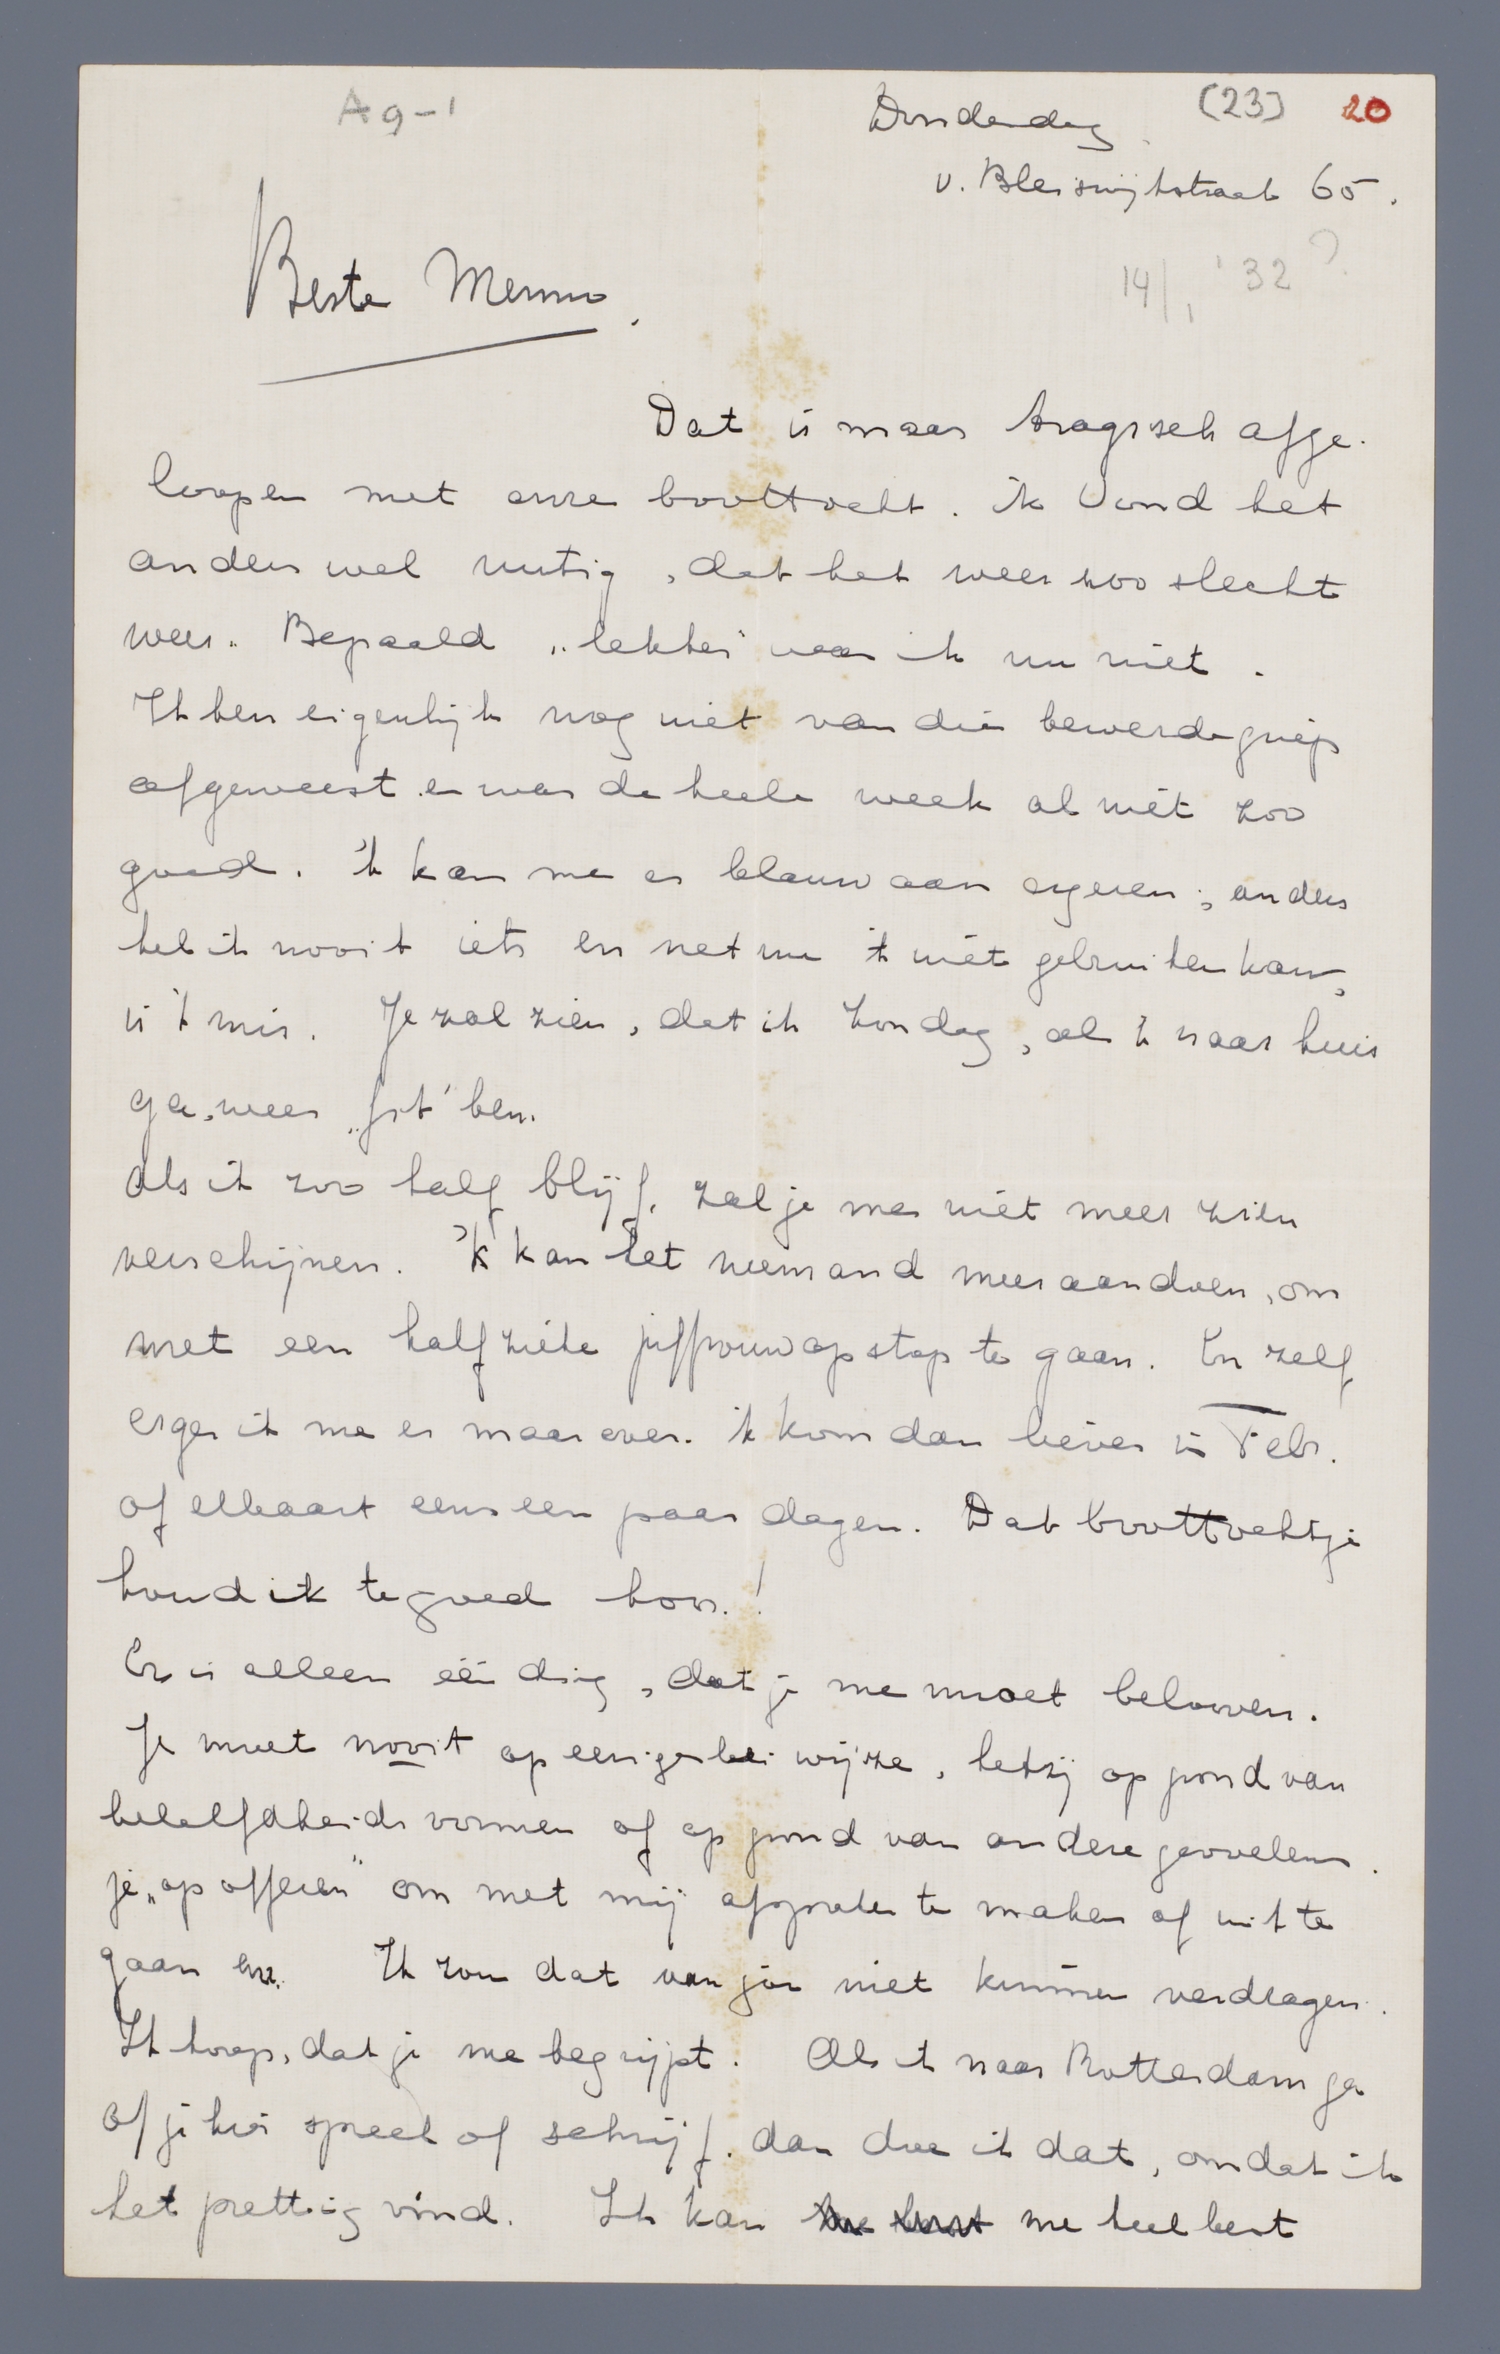 Ag-1
Donderdag (23) 20
v. Bleiswijkstraat 65.
14/1 '32 ?
Beste Menno.
Dat is maar tragisch afge-
loopen met onze boottocht. ik vond het
anders wel nuttig, dat het weer zoo slecht
was. Bepaald „lekker" was ik nu niet.
Ik ben eigenlijk nog niet van die beweerde griep
afgeweest en was de heele week al niet zoo
goed. 'k kan me er blauw aan ergeren; anders
heb ik nooit iets en net nu 'k niet gebruiken kan,
is 't mis. Je zal zien, dat ik Zondag, als 'k naar huis
ga, weer „fit" ben.
Als ik zoo half blijf, zal je me niet meer zien
verschijnen. 'k kan het niemand meer aandoen, om
met een half zieke juffrouw op stap te gaan. En zelf
erger ik me er maar over. 'k kom dan liever in Febr.
of elkaart eens een paar dagen. Dat boottochtje
houd ik te goed hoor.!
Er is alleen één ding, dat je me moet beloven.
Je moet nooit op eenigerlei wijze, hetzij op grond van
beleefdheidsvormen of op grond van andere gevoelens
je „opofferen" om met mij afspraken te maken of uit te
gaan enz. Ik zou dat van jou niet kunnen verdragen.
Ik hoop, dat je me begrijpt. Als ik naar Rotterdam ga
of je hier spreek of schrijf, dan doe ik dat, omdat ik
het prettig vind. Ik kan me heel best